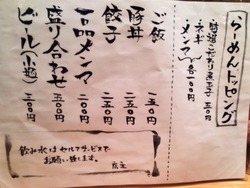 らーめんトッピング
味玉 五〇円
・ネギ
・メンマ 各一〇〇円
ご飯 一五〇円
豚丼 三五〇円
餃子
一品メンマ 二〇〇円
盛り合わせ 五〇〇円
ビール(小瓶) 三〇〇円
飲み水はセルフサービスで
お願い致します。
店主